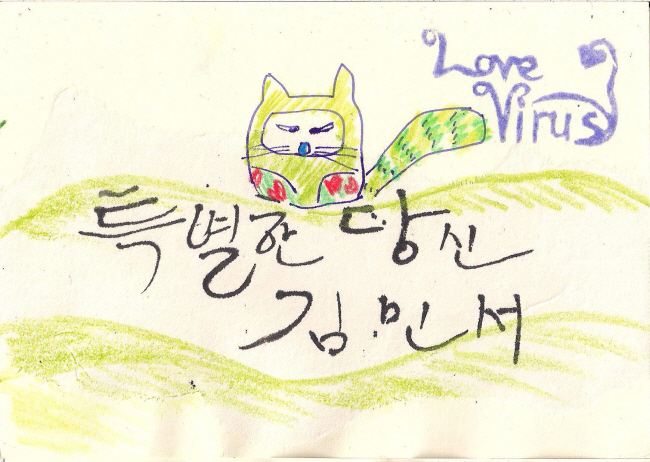 Love
Virus
특별한 당신
김민서